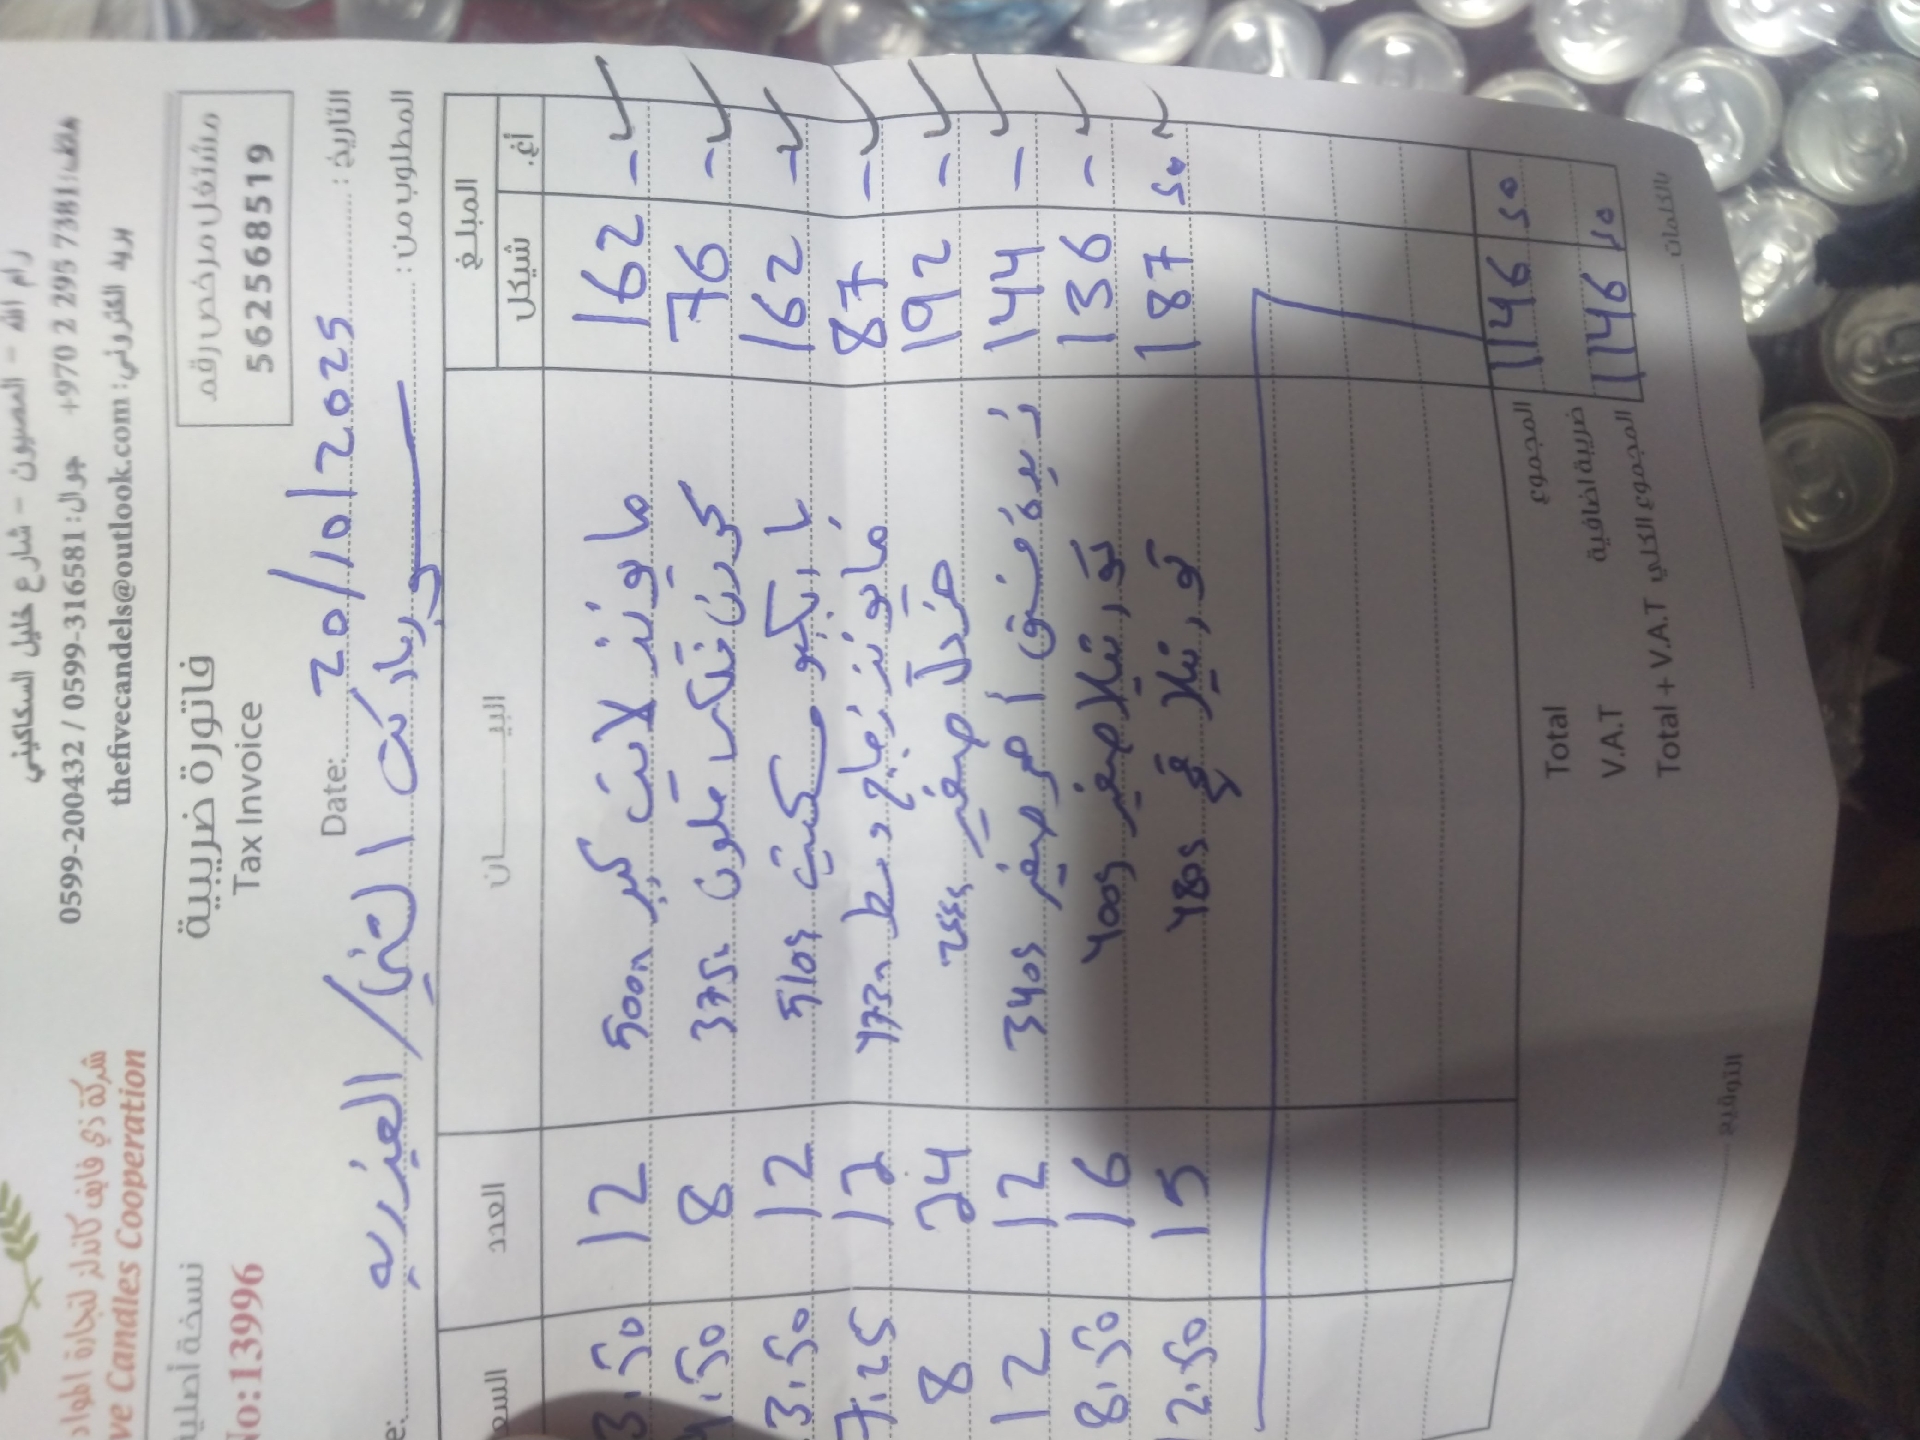 رام الله - المصيون - شارع خليل السكاكيني
هاتف: +970 2 295 7381 جوال: 0599-316581 / 0599-200432
بريد الكتروني: thefivecandels@outlook.com
شركة ذي فايف كاندلز لتجارة المواد
ve Candles Cooperation
مشتغل مرخص رقم
562568519
فاتورة ضريبية
Tax Invoice
نسخة أصلية
No:13996
التاريخ: 20/10/2025 Date:
المطلوب من: سوبر ماركت التقي / العيزرية
المبلغ البيـــــان العدد السعر
شيكل أغ.
162 - مايونيز لايت كبير 500 12 3.50
76 - 375 8 9.50
162 - باربكيو 510g 12 3.50
87 - مايونيز زجاج وسط 473 12 7.25
192 - خردل صغير 24 8
144 - 340g صغير 12 12
136 - تورتيلا صغير 400g 16 8.50
187 50 تورتيلا قمح 480g 15 2.50
المجموع Total 1146 50
ضريبة اضافية V.A.T
المجموع الكلي Total + V.A.T 1146 50
بالكلمات
التوقيع